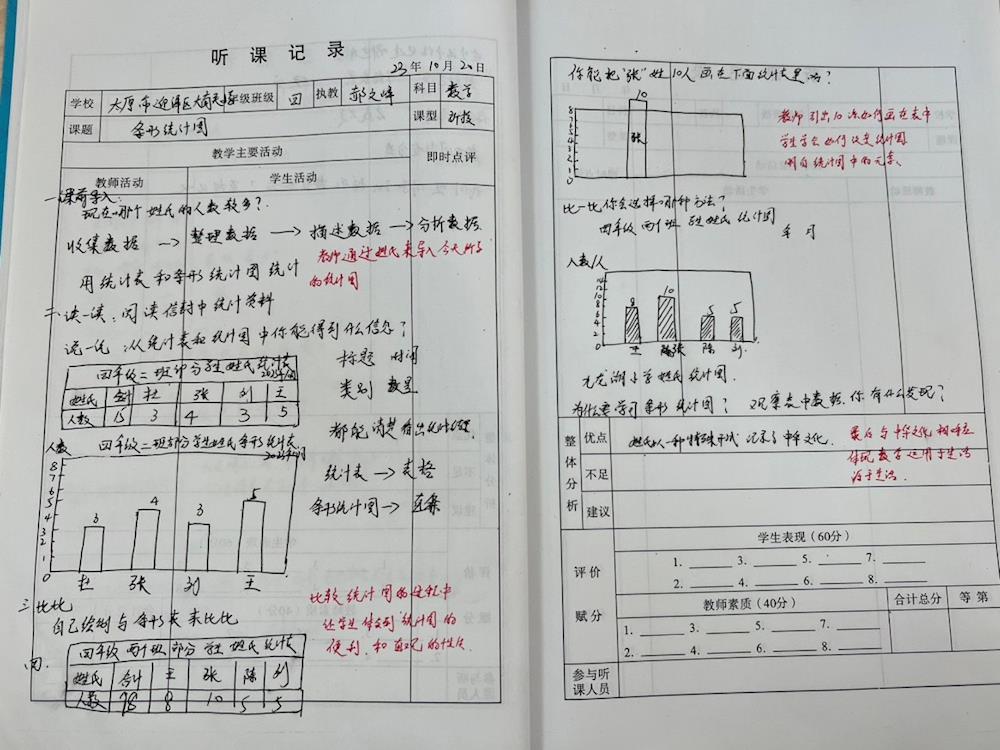 听课记录
23年10月20日
学校 太原市迎泽区 年级班级 四 执教 郝文峰 科目 数学
课题 条形统计图 课型 新授
教学主要活动 即时点评
教师活动 学生活动
一课前导入:
现在哪个姓氏的人数较多?
收集数据 → 整理数据 → 描述数据 → 分析数据
教师通过姓氏来导入今天所学
用统计表和条形统计图统计
的统计图
二、读一读:阅读信封中统计资料
说一说:从统计表和统计图中你能得到什么信息?
标题 时间
类别 数量
四年级二班部分学生姓氏统计表
姓氏 合计 杜 张 刘 王
人数 15 3 4 3 5
都能清楚看出
人数 四年级二班部分学生姓氏条形统计图
统计表 → 表格
条形统计图 → 直条
8
7
6
5
4
3
2
1
0
3 4 3 5
杜 张 刘 王
三比一比
自己绘制与条形类来比比
比较统计图的过程中
让学生体会到统计图的
便利,和直观的性质
四年级两个班部分学生姓氏统计表
姓氏 合计 王 张 陈 刘
人数 28 8 10 5 5
你能把"张"姓10人画在下面统计表里吗?
10
8
7
6
5
4
3
2
1
0
张
教师引出10该如何画在表中
学生学会如何改变统计图
比一比你会选择哪种方法?
四年级两个班学生姓氏统计图
年 月
人数/人
12
10
8
6
4
2
0
8 10 5 5
王 张 陈 刘
九龙湖小学姓氏统计图.
为什么要学习条形统计图? 观察表中数据,你有什么发现?
整体分析
优点 姓氏以一种特殊形式记录了中华文化.
最后与中华文化相呼应
体现数学运用于生活
源于生活.
不足
建议
评价赋分
学生表现(60分)
1. 3. 5. 7.
2. 4. 6. 8.
教师素质(40分) 合计总分 等第
1. 3. 5. 7.
2. 4. 6. 8.
参与听课人员